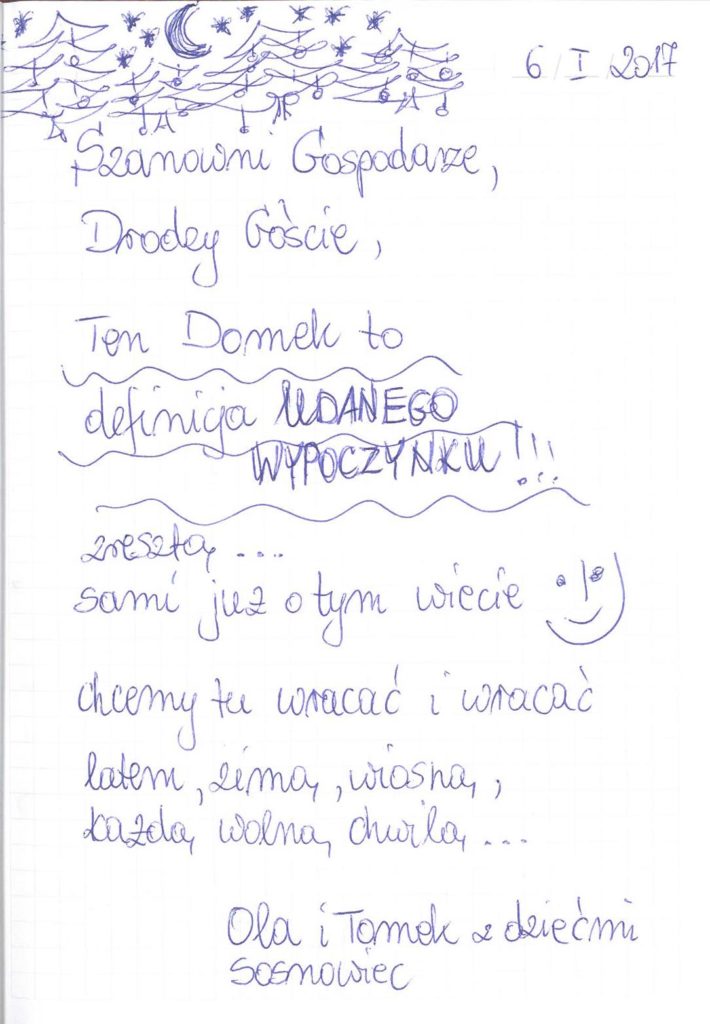 6 I 2017
Szanowni Gospodarze,
Drodzy Goście,
Ten Domek to
definicja UDANEGO
WYPOCZYNKU!!!
zresztą ...
sami już o tym wiecie
chcemy tu wracać i wracać
latem, zimą, wiosną,
każdą wolną chwilą ...
Ola i Tomek z dziećmi
Sosnowiec